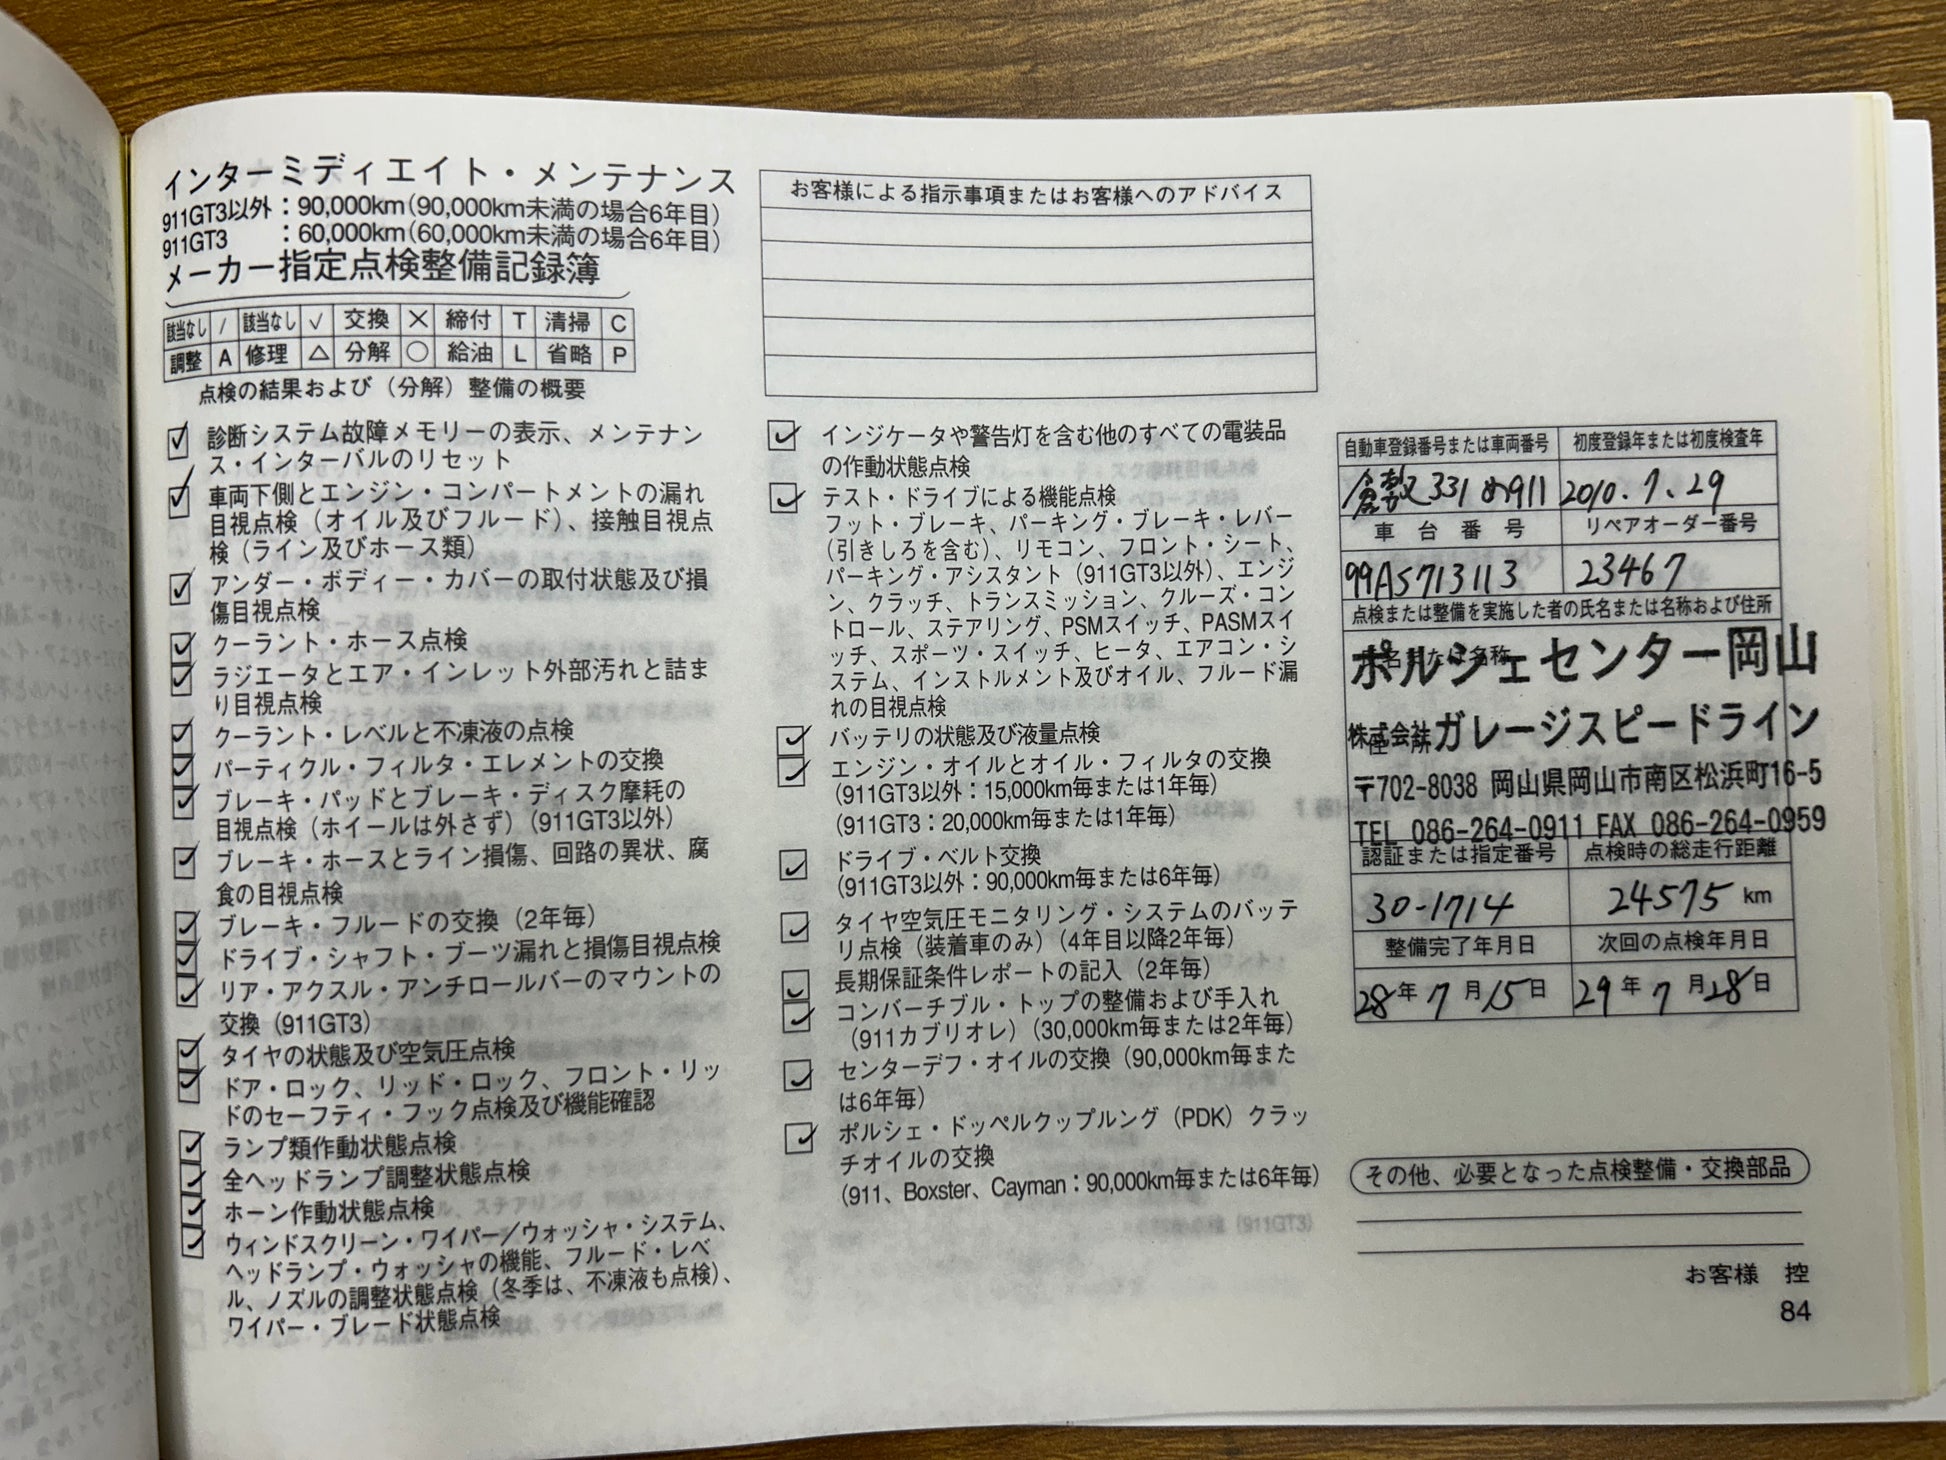 インターミディエイト・メンテナンス
911GT3以外：90,000km(90,000km未満の場合6年目)
911GT3　　：60,000km(60,000km未満の場合6年目)
メーカー指定点検整備記録簿
該当なし / 該当なし √ 交換 × 締付 T 清掃 C
調整 A 修理 △ 分解 ○ 給油 L 省略 P
点検の結果および（分解）整備の概要
診断システム故障メモリーの表示、メンテナン
ス・インターバルのリセット
車両下側とエンジン・コンパートメントの漏れ
目視点検（オイル及びフルード）、接触目視点
検（ライン及びホース類）
アンダー・ボディー・カバーの取付状態及び損
傷目視点検
クーラント・ホース点検
ラジエータとエア・インレット外部汚れと詰ま
り目視点検
クーラント・レベルと不凍液の点検
パーティクル・フィルタ・エレメントの交換
ブレーキ・パッドとブレーキ・ディスク摩耗の
目視点検（ホイールは外さず）（911GT3以外）
ブレーキ・ホースとライン損傷、回路の異状、腐
食の目視点検
ブレーキ・フルードの交換（2年毎）
ドライブ・シャフト・ブーツ漏れと損傷目視点検
リア・アクスル・アンチロールバーのマウントの
交換（911GT3）
タイヤの状態及び空気圧点検
ドア・ロック、リッド・ロック、フロント・リッ
ドのセーフティ・フック点検及び機能確認
ランプ類作動状態点検
全ヘッドランプ調整状態点検
ホーン作動状態点検
ウィンドスクリーン・ワイパー／ウォッシャ・システム、
ヘッドランプ・ウォッシャの機能、フルード・レベ
ル、ノズルの調整状態点検（冬季は、不凍液も点検）、
ワイパー・ブレード状態点検
お客様による指示事項またはお客様へのアドバイス
インジケータや警告灯を含む他のすべての電装品
の作動状態点検
テスト・ドライブによる機能点検
フット・ブレーキ、パーキング・ブレーキ・レバー
（引きしろを含む）、リモコン、フロント・シート、
パーキング・アシスタント（911GT3以外）、エンジ
ン、クラッチ、トランスミッション、クルーズ・コン
トロール、ステアリング、PSMスイッチ、PASMスイ
ッチ、スポーツ・スイッチ、ヒータ、エアコン・シ
ステム、インストルメント及びオイル、フルード漏
れの目視点検
バッテリの状態及び液量点検
エンジン・オイルとオイル・フィルタの交換
（911GT3以外：15,000km毎または1年毎）
（911GT3：20,000km毎または1年毎）
ドライブ・ベルト交換
（911GT3以外：90,000km毎または6年毎）
タイヤ空気圧モニタリング・システムのバッテ
リ点検（装着車のみ）（4年目以降2年毎）
長期保証条件レポートの記入（2年毎）
コンバーチブル・トップの整備および手入れ
（911カブリオレ）（30,000km毎または2年毎）
センターデフ・オイルの交換（90,000km毎また
は6年毎）
ポルシェ・ドッペルクップルング（PDK）クラッ
チオイルの交換
（911、Boxster、Cayman：90,000km毎または6年毎）
自動車登録番号または車両番号 初度登録年または初度検査年
倉敷 331 め911 2010.7.29
車台番号 リペアオーダー番号
99AS713113 23467
点検または整備を実施した者の氏名または名称および住所
ポルシェセンター岡山
株式会社ガレージスピードライン
〒702-8038 岡山県岡山市南区松浜町16-5
TEL 086-264-0911 FAX 086-264-0959
認証または指定番号 点検時の総走行距離
30-1714 24575 km
整備完了年月日 次回の点検年月日
28年7月15日 29年7月28日
その他、必要となった点検整備・交換部品
お客様　控
84